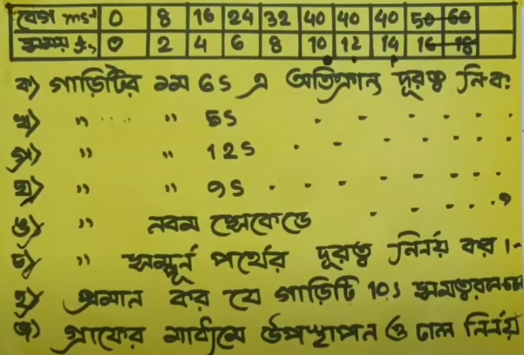 বেগ ms⁻¹ 0 8 16 24 32 40 40 40 50 60
সময় s 0 2 4 6 8 10 12 14 16 18
ক) গাড়িটির ১ম 6s এ অতিক্রান্ত দূরত্ব নি.ক.
খ) " " 5s " " "
গ) " " 12s " " "
ঘ) " " 9s " " "
ঙ) " নবম সেকেন্ডে " " "
চ) " সম্পূর্ন পথের দূরত্ব নির্নয় কর।
ছ) প্রমান কর যে গাড়িটি 10s সমত্বরনে
জ) গ্রাফের মাধ্যমে উপস্থাপন ও ঢাল নির্নয়